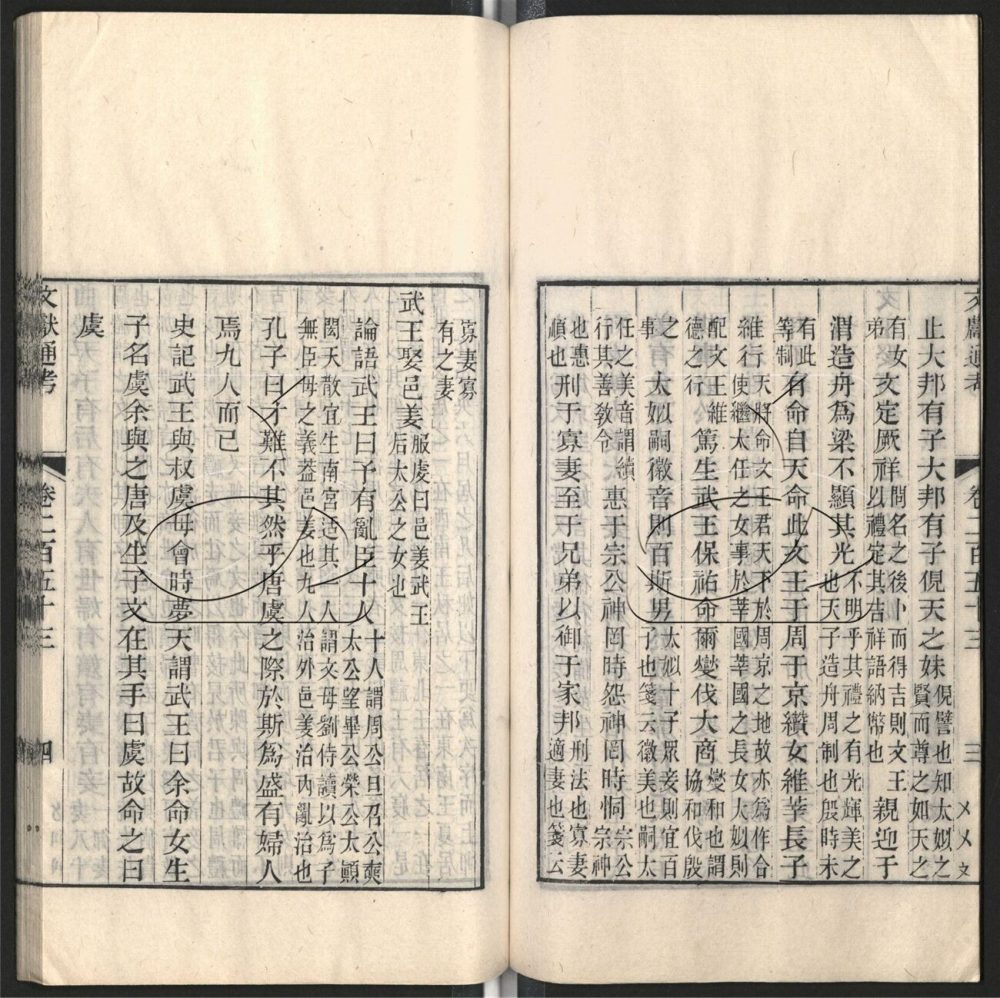 文獻通考 卷二百五十三 三
止大邦有子大邦有子俔天之妹俔譬也知太姒之
賢而尊之如天之
有女
弟
文定厥祥問名之後卜而得吉則文王
以禮定其吉祥語納幣也
親迎于
渭造舟為梁不顯其光不明乎其禮之有光輝美之
也天子造舟周制也殷時未
有此
等制
有命自天命此文王于周于京纘女維莘長子
維行天將命文王君天下於周京之地故亦為作合
使繼太任之女事於莘國莘國之長女太姒則
配文王維
德之行
篤生武王保祐命爾燮伐大商燮和也謂
協和伐殷
之
事
太姒嗣徽音則百斯男太姒十子眾妾則宜百
子也箋云徽美也嗣太
任之美音謂續
行其善敎令
惠于宗公神罔時怨神罔時恫宗公
宗神
也惠
順也
刑于寡妻至于兄弟以御于家邦刑法也寡妻
適妻也箋云
寡妻寡
有之妻
武王娶邑姜服虔曰邑姜武王
后太公之女也
論語武王曰予有亂臣十人十人謂周公旦召公奭
太公望畢公榮公太顚
閎天散宜生南宮适其一人謂文母劉侍讀以為子
無臣母之義蓋邑姜也九人治外邑姜治內亂治也
孔子曰才難不其然乎唐虞之際於斯為盛有婦人
焉九人而已
史記武王與叔虞母會時夢天謂武王曰余命女生
子名虞余與之唐及生子文在其手曰虞故命之曰
虞
文獻通考 卷二百五十三 四